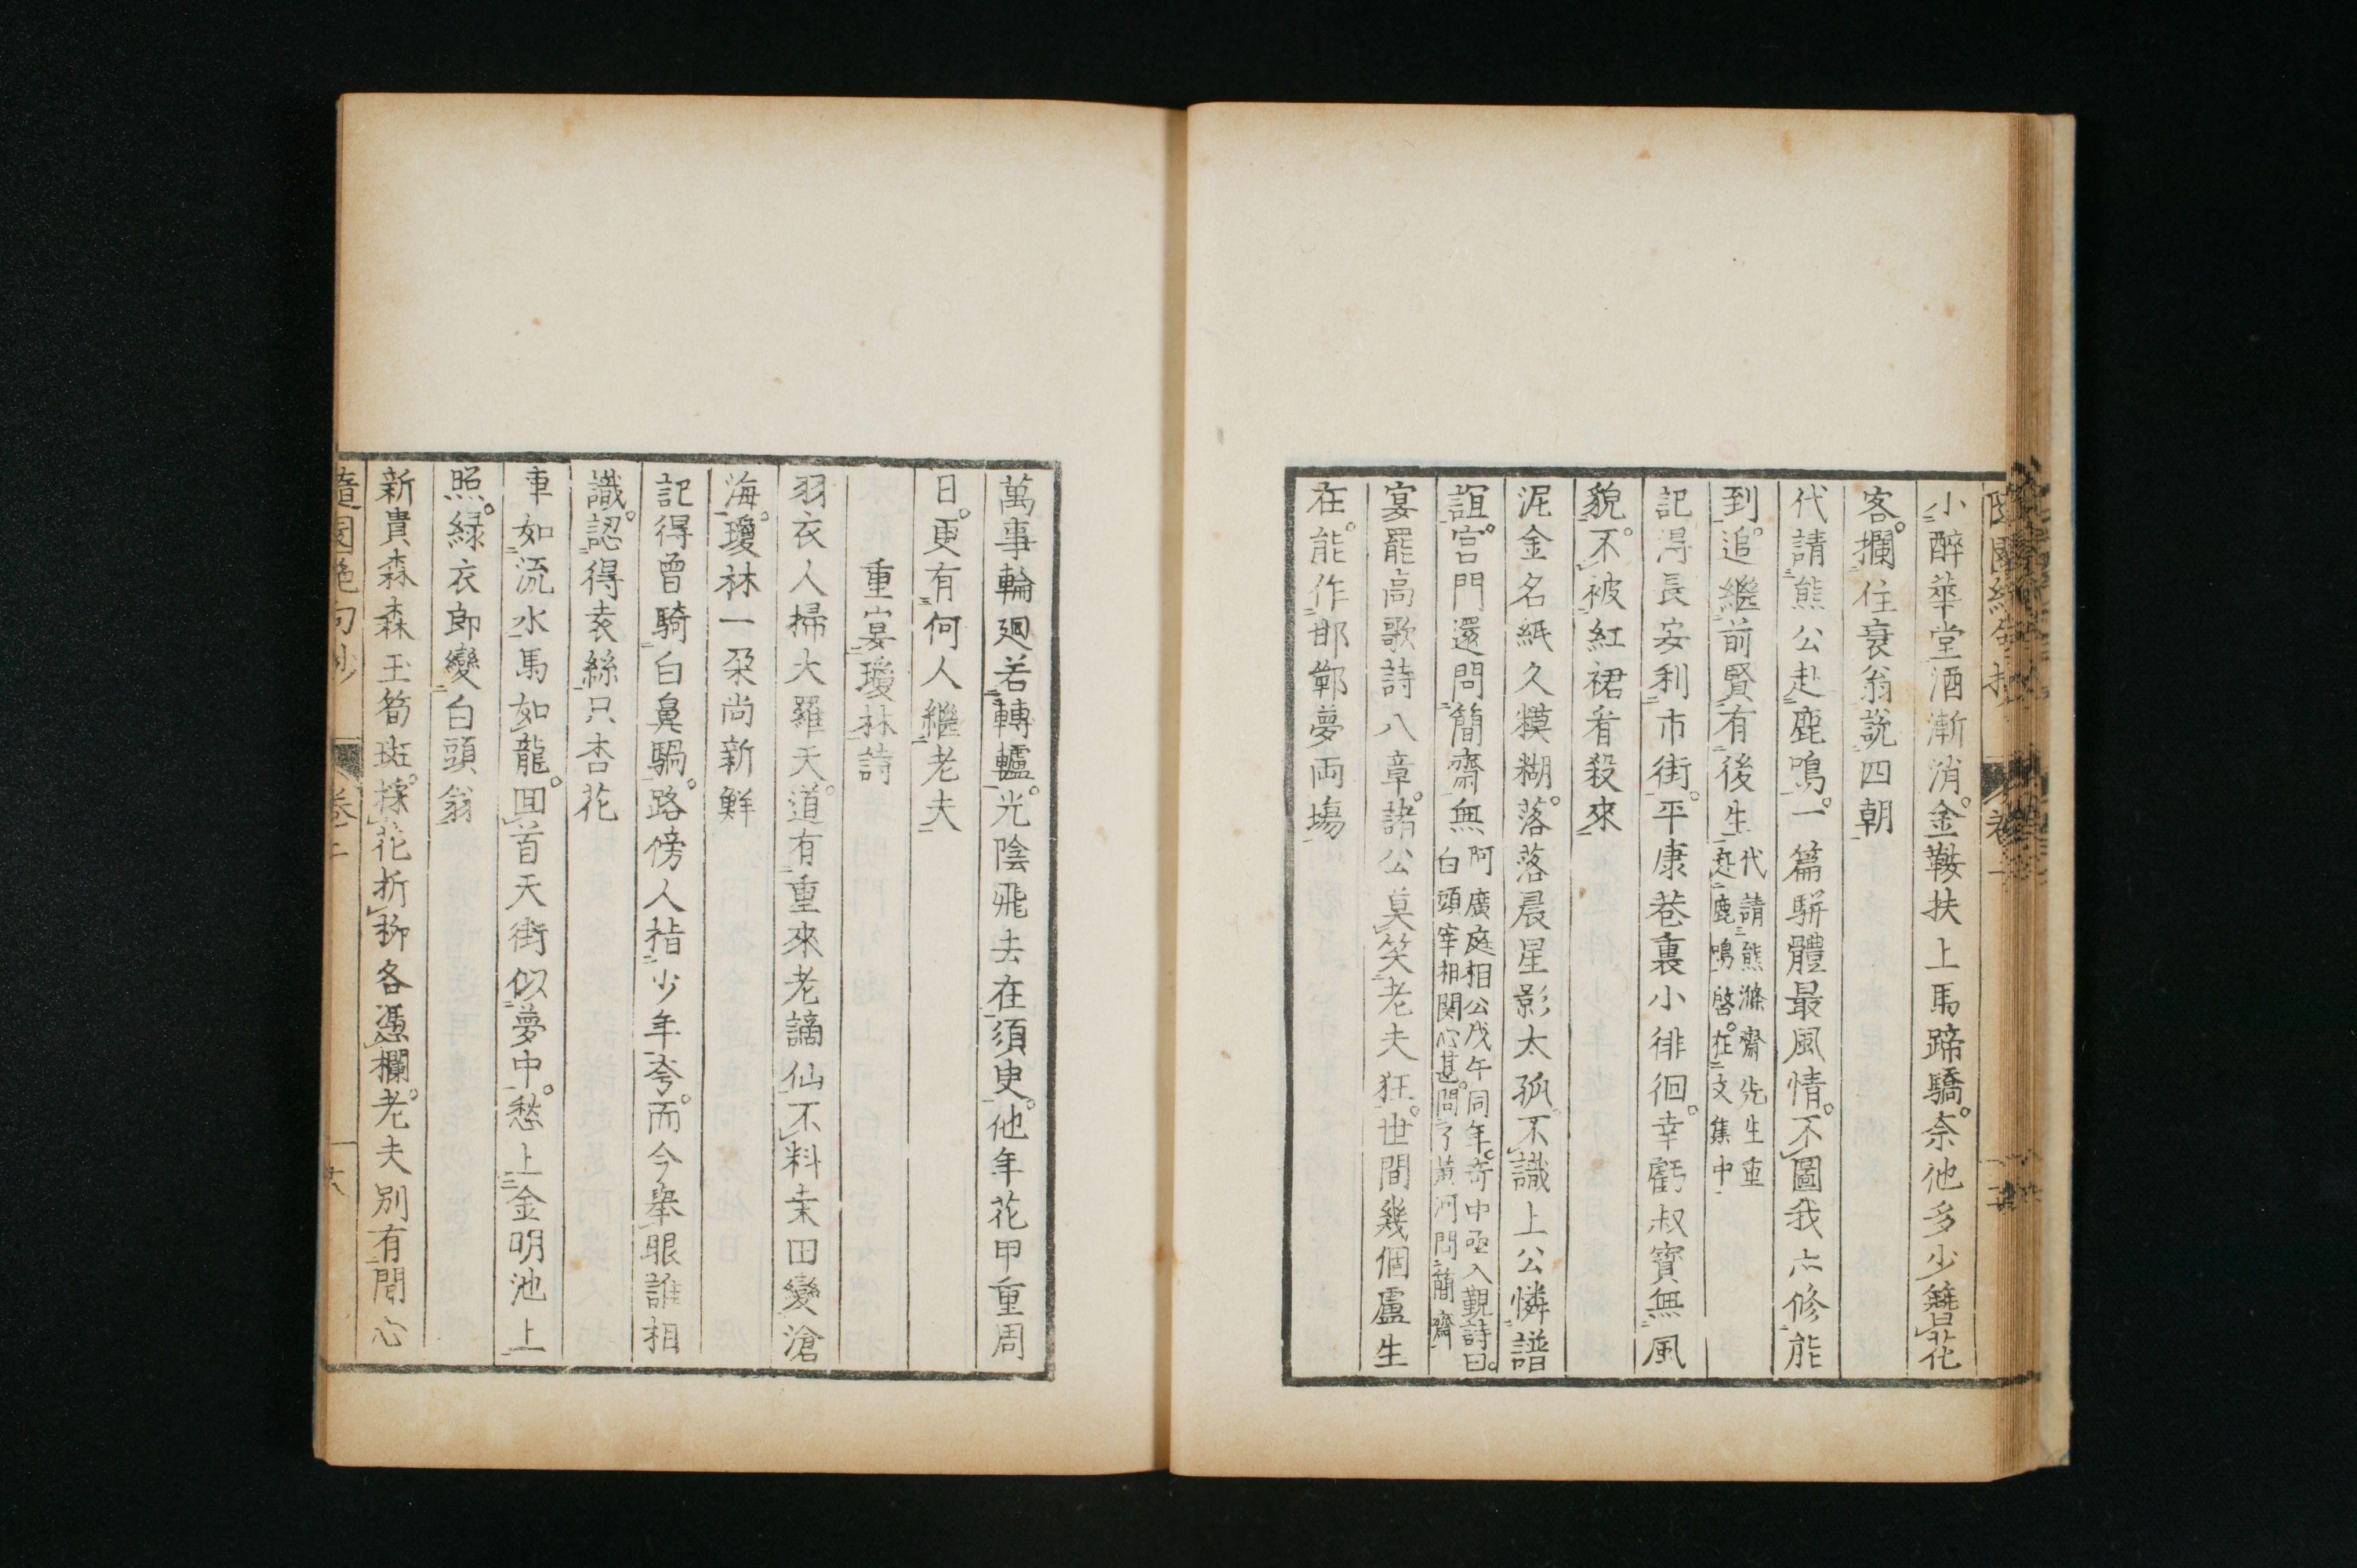 小醉華堂酒漸消金鞍扶上馬蹄驕奈他多少簪花
客攔住衰翁說四朝
代請熊公赴鹿鳴一篇駢體最風情不圖我亦修能
到追繼前賢有後生
代請熊滌齋先生重
赴鹿鳴啓在文集中
記得長安利市街平康巷裏小徘徊幸虧叔寶無風
貌不被紅裙看殺來
泥金名紙久糢糊落落晨星影太孤不識上公憐譜
誼宮門還問簡齋無
阿廣庭相公戊午同年奇中丞入覲詩曰
白頭宰相関心甚問了黃河問簡齋
宴罷高歌詩八章諸公莫笑老夫狂世間幾個盧生
在能作邯鄲夢両塲
萬事輪廻若轉轤光陰飛去在須臾他年花甲重周
日更有何人継老夫
重宴瓊林詩
羽衣人掃大羅天道有重來老謫仙不料桒田變滄
海瓊林一朶尚新鮮
記得曾騎白鼻騧路傍人指少年夸而今舉眼誰相
識認得𡊮絲只杏花
車如流水馬如龍囬首天街似夢中愁上金明池上
照緑衣郎變白頭翁
新貴森森玉筍斑探花折柳各憑欄老夫別有閒心
隨園絶句抄
卷二
十六